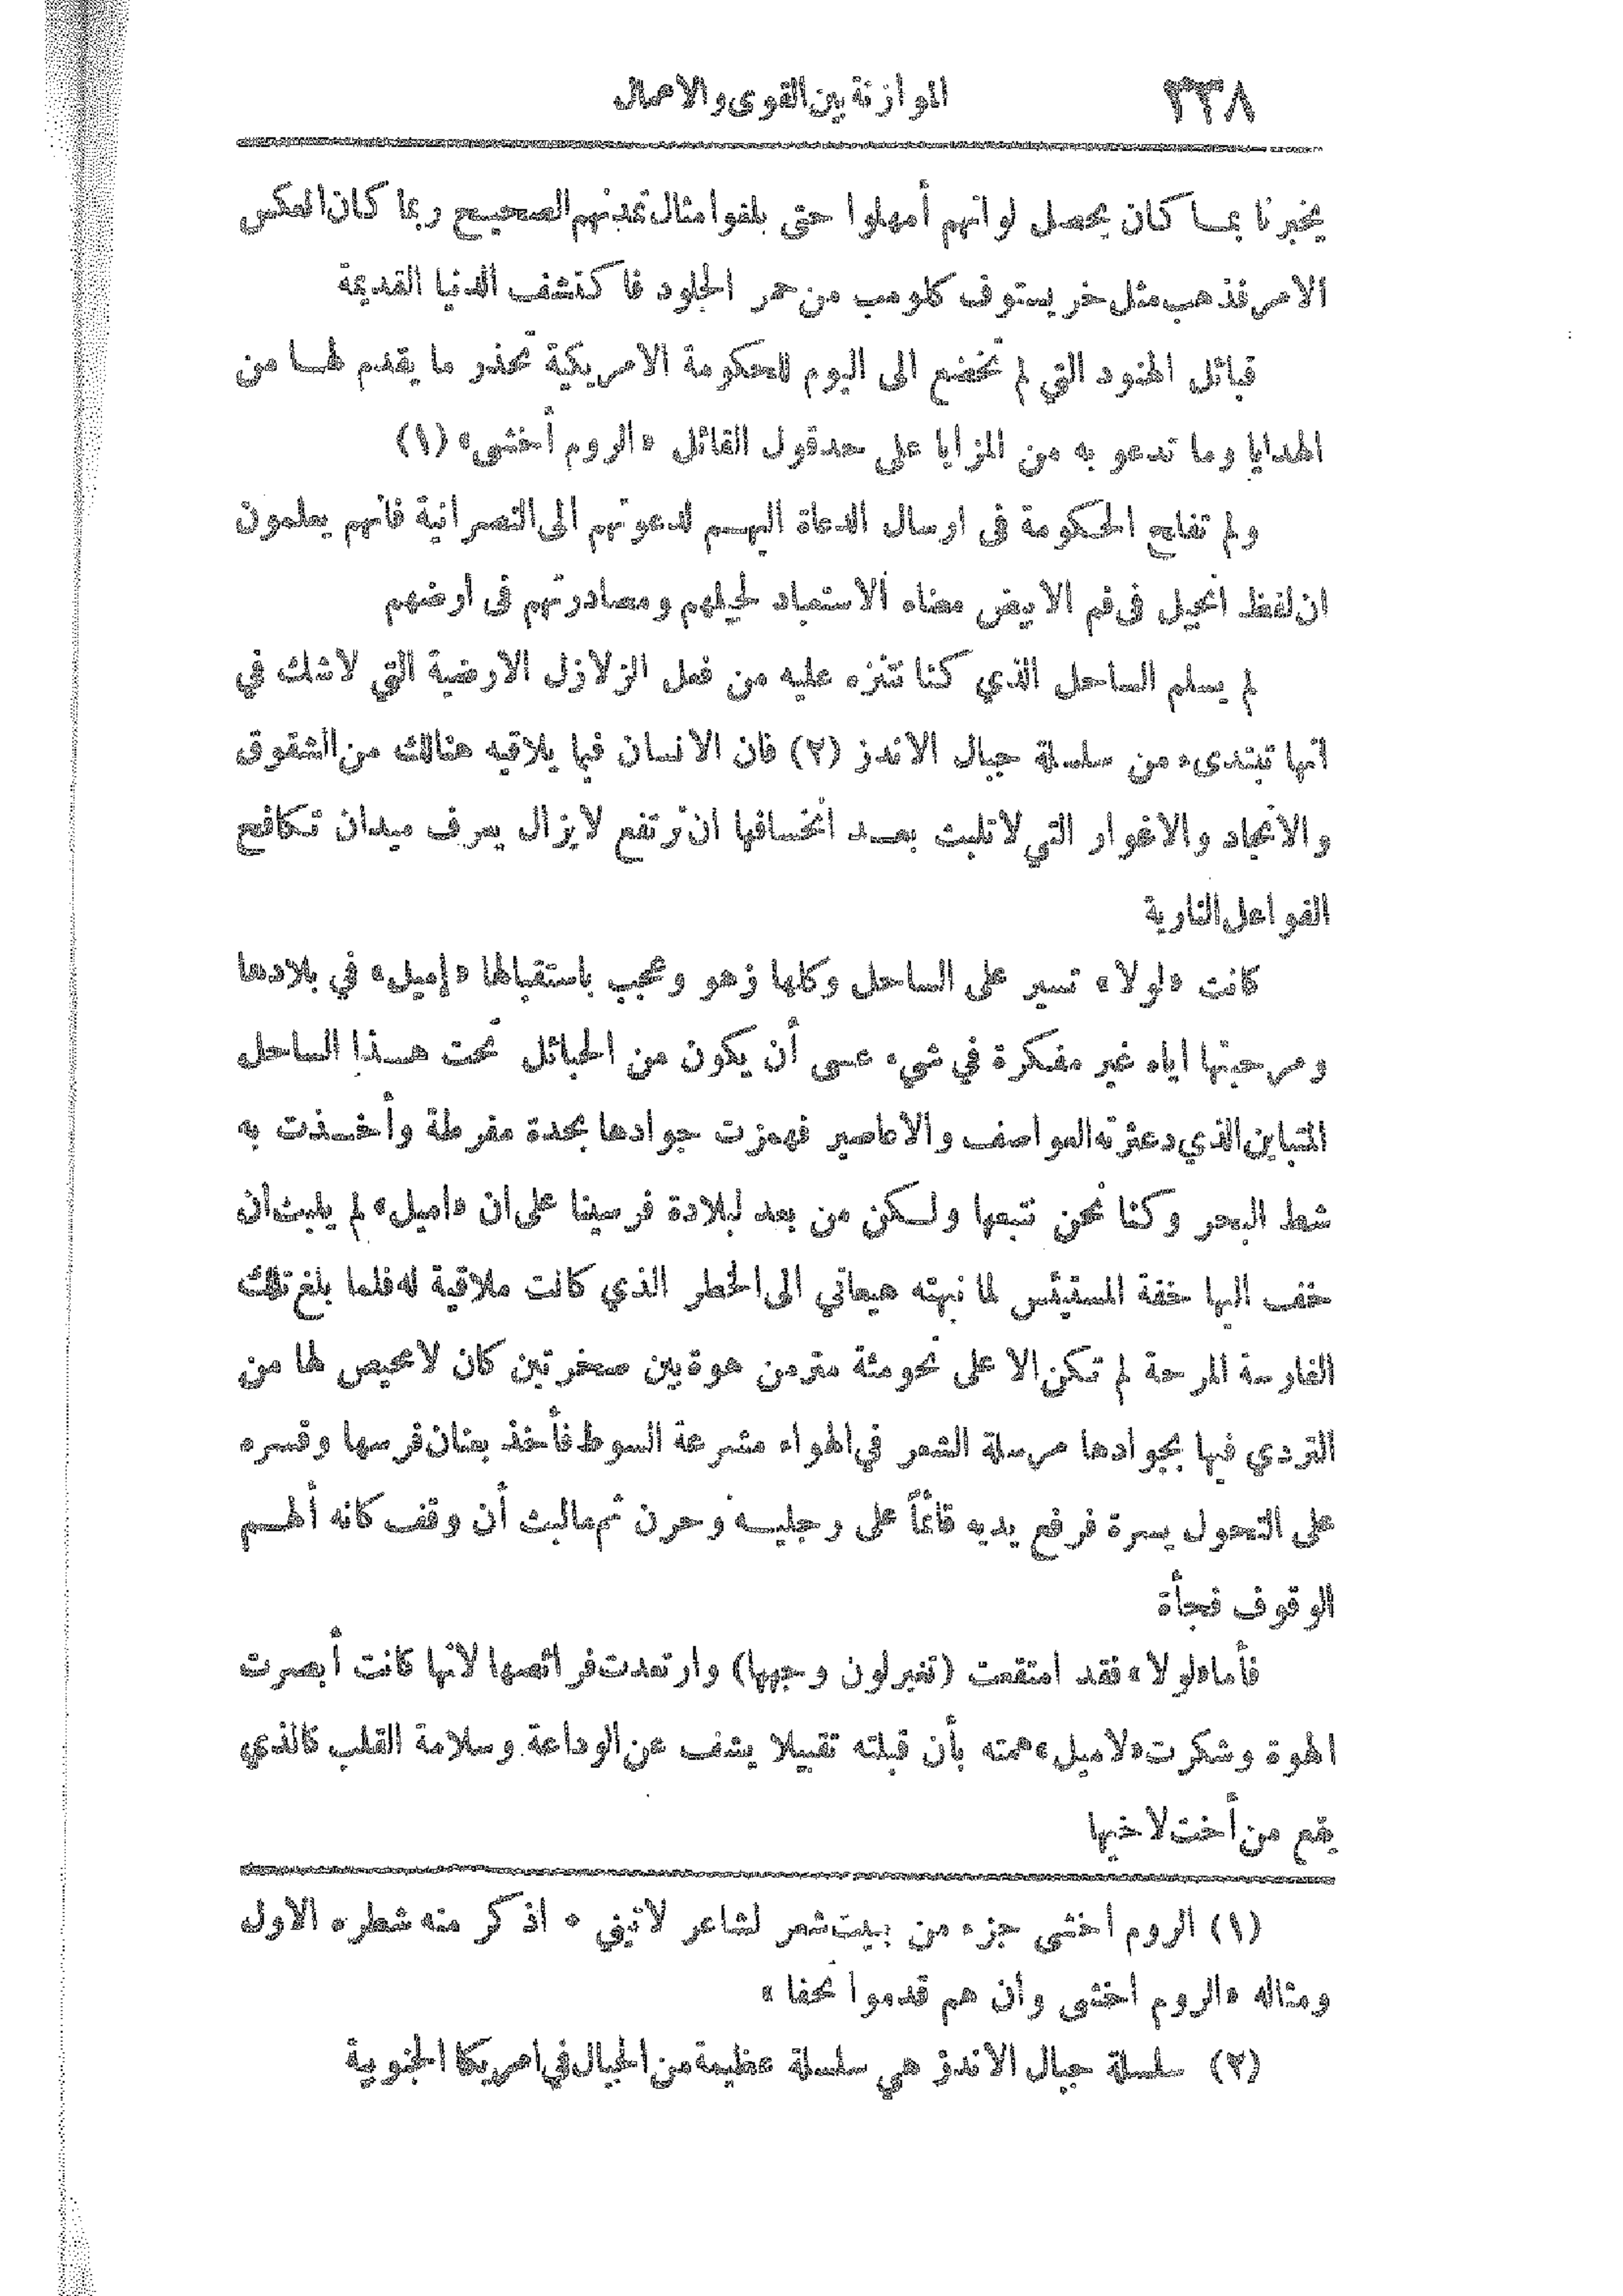 ٣٣٨
الموازنة بين القوى والاعمال
يخبرنا بما كان يحصل لو انهم أمهلوا حتى بلغوا مثال تمدنهم الصحيح ربما كان انعكس
الامر فذهب مثل خريستوف كلومب من حمر الجلود فاكتشف الدنيا القديمة
قبائل الهنود التي لم تخضع الى اليوم للحكومة الامريكية تحذر ما يقدم لها من
الهدايا وما تدعو به من المزايا على حد قول القائل «الروم أخشى» (١)
ولم تفلح الحكومة فى ارسال الدعاة اليهم لدعوتهم الى النصرانية فانهم يعلمون
ان لفظ انجيل فى فم الابيض معناه الاستعباد لجيلهم ومصادرتهم فى أرضهم
لم يسلم الساحل الذي كنا نتنزه عليه من فعل الزلازل الارضية التي لاشك في
انها تبتدىء من سلسلة جبال الاندز (٢) فان الانسان فيما يلاقيه هنالك من الشقوق
والانجاد والاغوار التي لاتلبث بعد انخسافها ان ترتفع لايزال يعرف ميدان تكافح
الفواعل النارية
كانت «لولا» تسير على الساحل وكلها زهو وعجب باستقبالها «إميل» في بلادها
ومرحبتها اياه غير مفكرة في شيء عسى أن يكون من الحبائل تحت هذا الساحل
المتباين الذي دعثرته العواصف والاعاصير فهمزت جوادها بحدة مفرطة وأخذت به
شط البحر وكنا نحن نتبعها ولكن من بعد لبلادة فرسينا على ان «اميل» لم يلبث ان
خف اليها خفة المستيئس لما نبهته صيحاتي الى الخطر الذي كانت ملاقية له فلما بلغ تلك
الفارسة المرحة لم تكن الا على نحو مئة متر من هوة بين صخرتين كان لا محيص لها من
التردي فيها بجوادها مرسلة الشعر في الهواء مشرعة السوط فأخذ بعنان فرسها وقسره
على التحول يسرة فرفع يديه قائمًا على رجليه وحرن ثم مالبث أن وقف كانه ألهم
الوقوف فجأة
فأما «لولا» فقد امتقعت (تغير لون وجهها) وارتعدت فرائصها لانها كانت أبصرت
الهوة وشكرت «لاميل» همته بأن قبلته تقبيلا يشف عن الوداعة وسلامة القلب كالذي
يقع من أخت لاخيها
(١) الروم اخشى جزء من بيت شعر لشاعر لاتيني ٠ اذكر منه شطره الاول
ومثاله «الروم اخشى وان هم قدموا تحفا»
(٢) سلسلة جبال الاندز هي سلسلة عظيمة من الجبال في امريكا الجنوبية